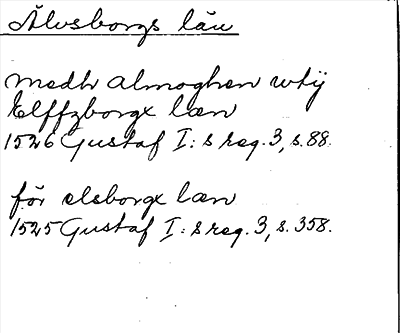 Älvsborgs län
medh almoghen wtÿ
Elffzborgx læn
1526 Gustaf I:s reg. 3, s. 88.
för elsborgx læn
1525 Gustaf I:s reg. 3, s. 358.